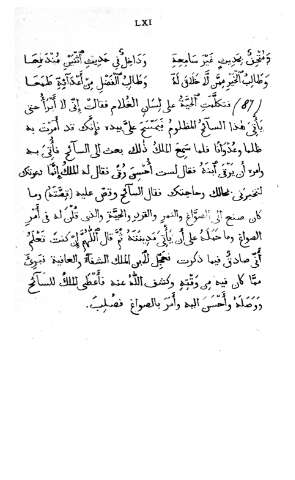 LXI
وداخل في حديث اثنين مندفعا
وطالب الفضل من أعدائه طمعا
(87) فتكلمت الحية على لسان الغلام فقالت إني لا أبرأ حتى
يأتي هذا السائح المظلوم فيمسح علي بيده فإنك قد أمرت به
ظلما وعدوانا فلما سمع الملك ذلك بعث الى السائح فأتى به
وامره أن يرقى ابنه فقال لست أحسن رقى فقال له الملك إنما دعوتك
لتخبرني بحالك وحاجتك فقال السائح وقص عليه قصته وما
كان صنع الى الصواغ والنمر والقرد والحية والذي قلن له في أمر
الصواغ وما حمله على أن يأتي مدينته ثم قال اللهم إن كنت تعلم
أني صادق فيما ذكرت فعجل لابن الملك الشفاء والعافية فبرئ
مما كان فيه من وقته وكشف الله عنه فأعطى الملك للسائح
ووصله وأحسن اليه وأمر بالصواغ فصلب